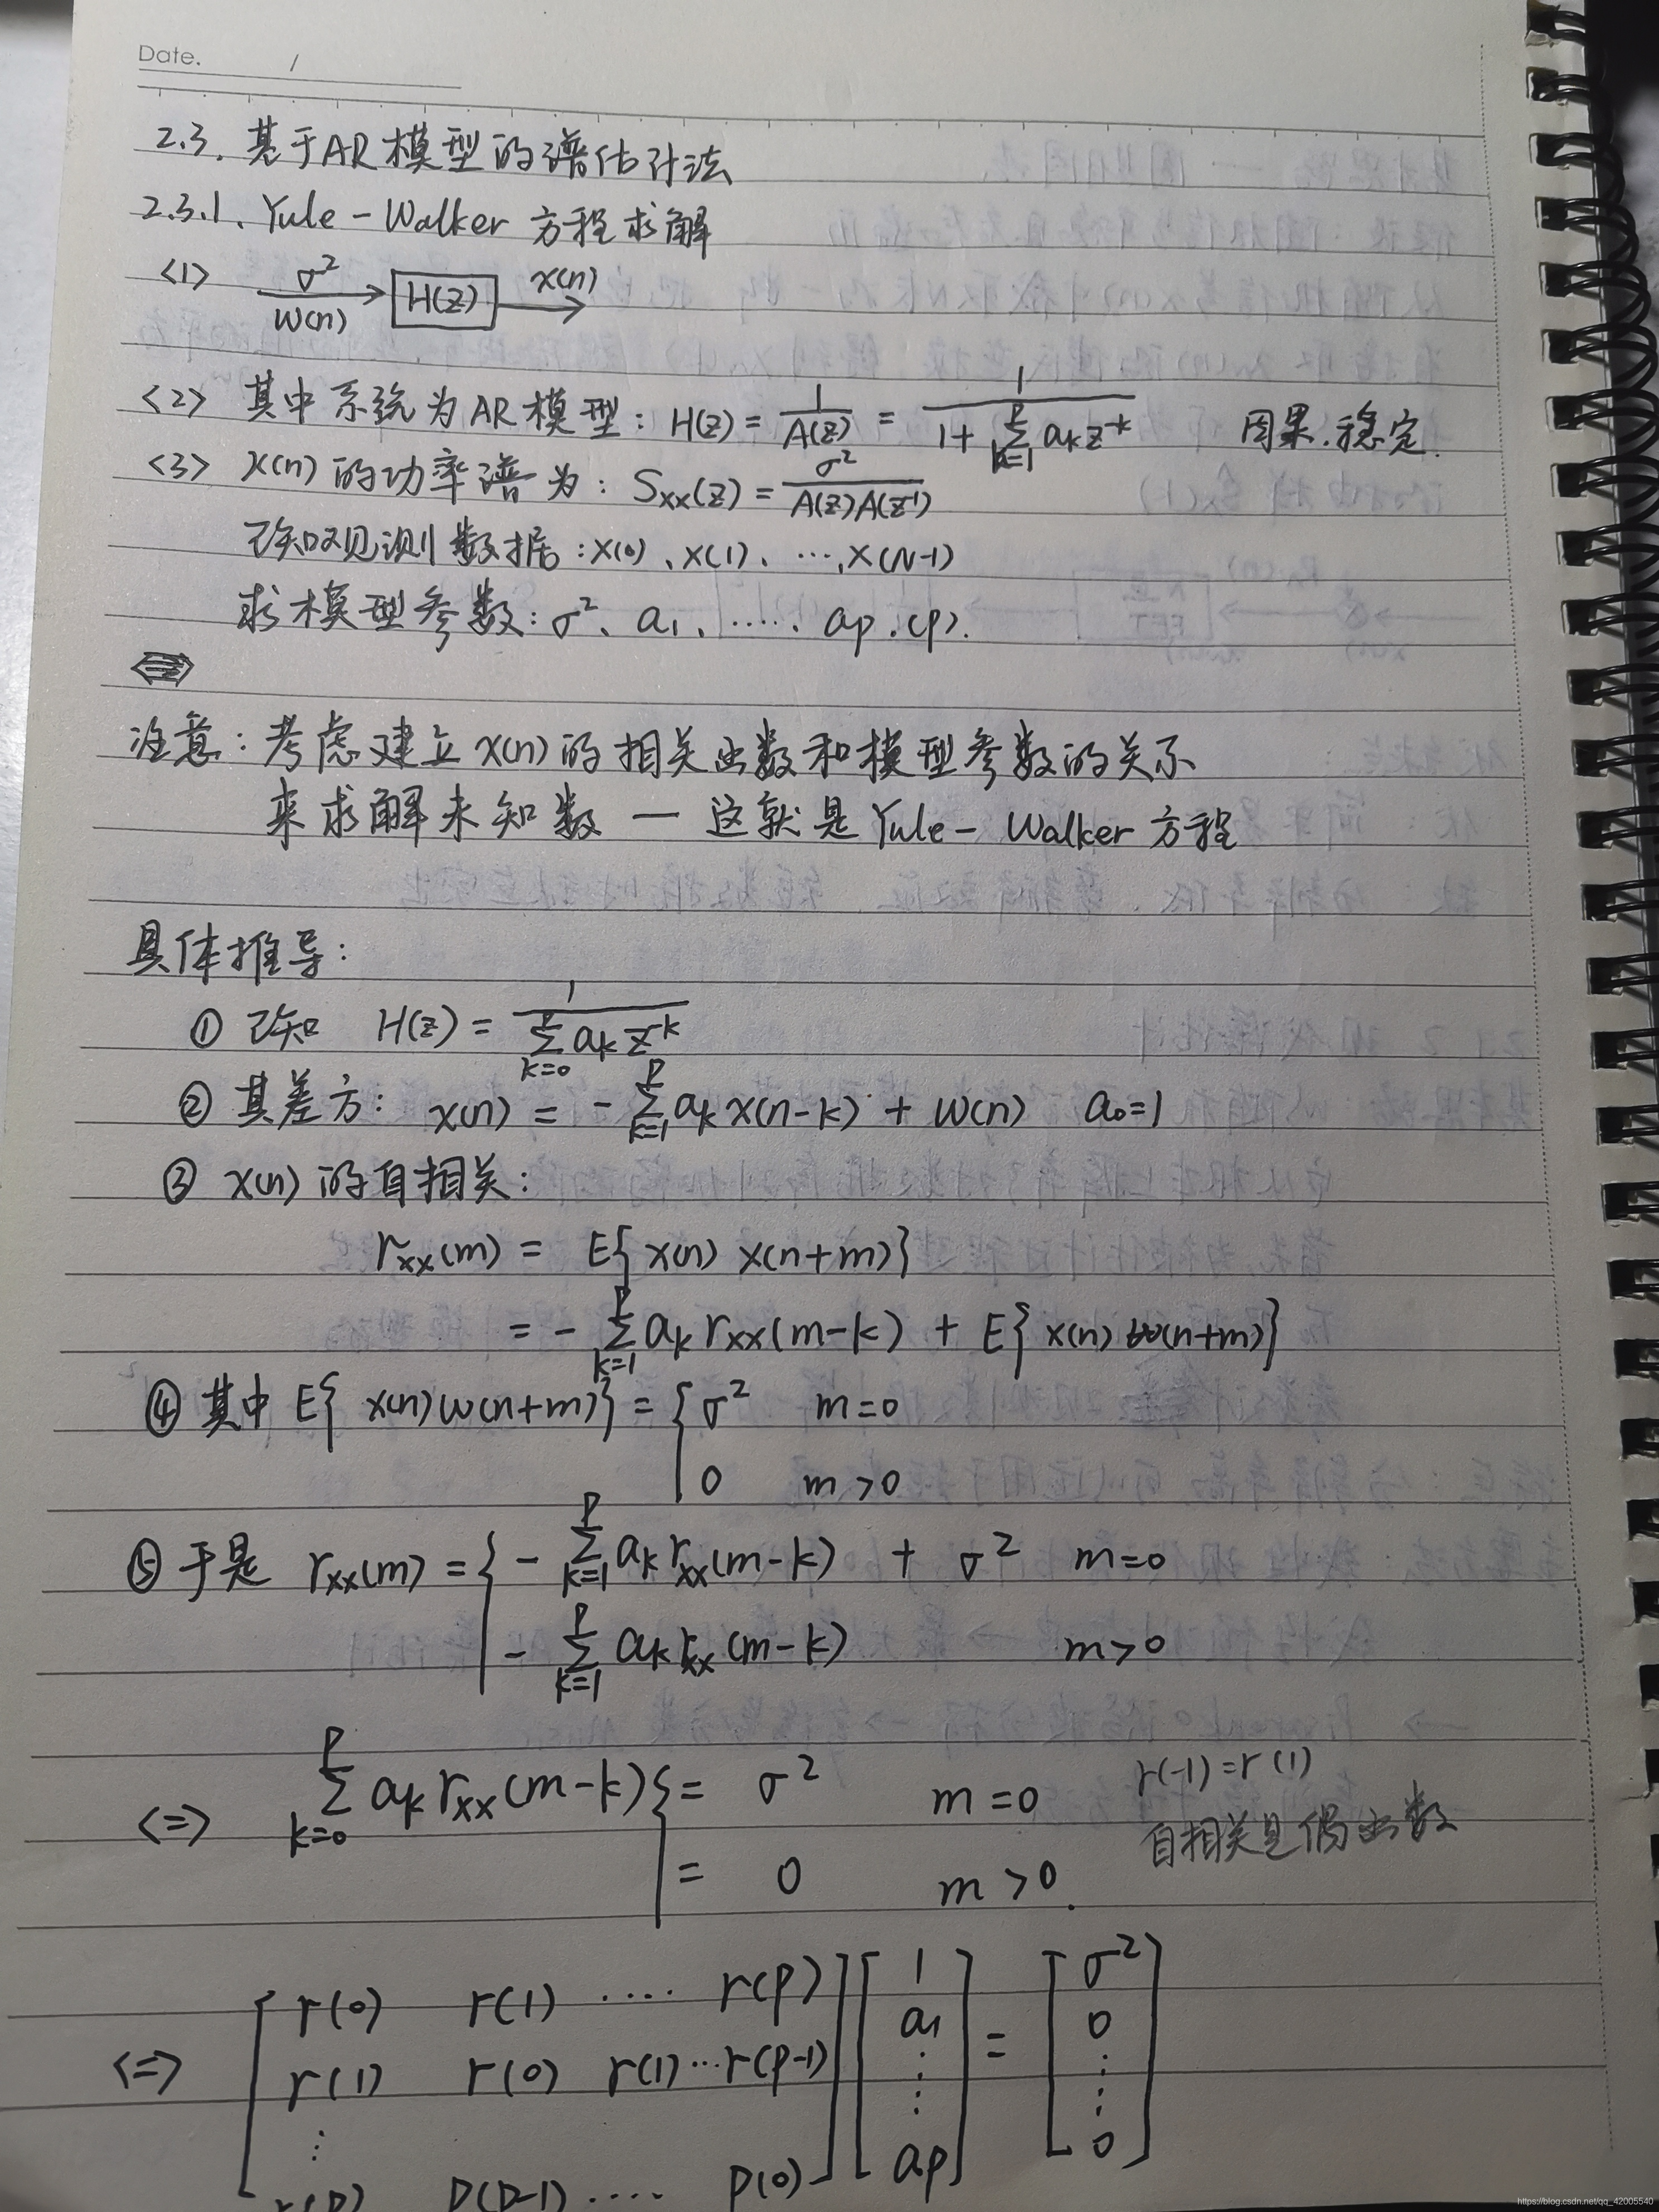 Date. /
2.3. 基于AR模型的谱估计法
2.3.1、Yule-Walker 方程求解
<1> σ² W(n) → H(z) → x(n)
<2> 其中系统为AR模型: H(z) = 1/A(z) = 1/(1+∑_{k=1}^{P} a_k z^{-k}) 因果.稳定.
<3> x(n)的功率谱为: S_xx(z) = σ²/(A(z)A(z^{-1}))
已知观测数据: x(0)、x(1)、…,x(N-1)
求模型参数: σ²、a_1、…… a_p.(p).
注意: 考虑建立x(n)的相关函数和模型参数的关系
来求解未知数 — 这就是Yule-Walker 方程
具体推导:
① 已知 H(z) = 1/(∑_{k=0}^{P} a_k z^{-k})
② 其差方: x(n) = -∑_{k=1}^{P} a_k x(n-k) + W(n) a_0=1
③ x(n)的自相关:
r_xx(m) = E{x(n) x(n+m)}
= -∑_{k=1}^{P} a_k r_xx(m-k) + E{x(n) w(n+m)}
④ 其中 E{x(n)w(n+m)} = { σ² m=0
0 m>0
⑤ 于是 r_xx(m) = { -∑_{k=1}^{P} a_k r_xx(m-k) + σ² m=0
-∑_{k=1}^{P} a_k r_xx(m-k) m>0
<=> ∑_{k=0}^{P} a_k r_xx(m-k) { = σ² m=0 r(-1)=r(1)
= 0 m>0. 自相关是偶函数
[ r(0) r(1) …. r(p) ] [ 1 ] [ σ² ]
<=> r(1) r(0) r(1)…r(p-1) a_1 = 0
⋮ ⋮ ⋮
r(p) p(p-1) …. p(0) a_p 0
https://blog.csdn.net/qq_42005540